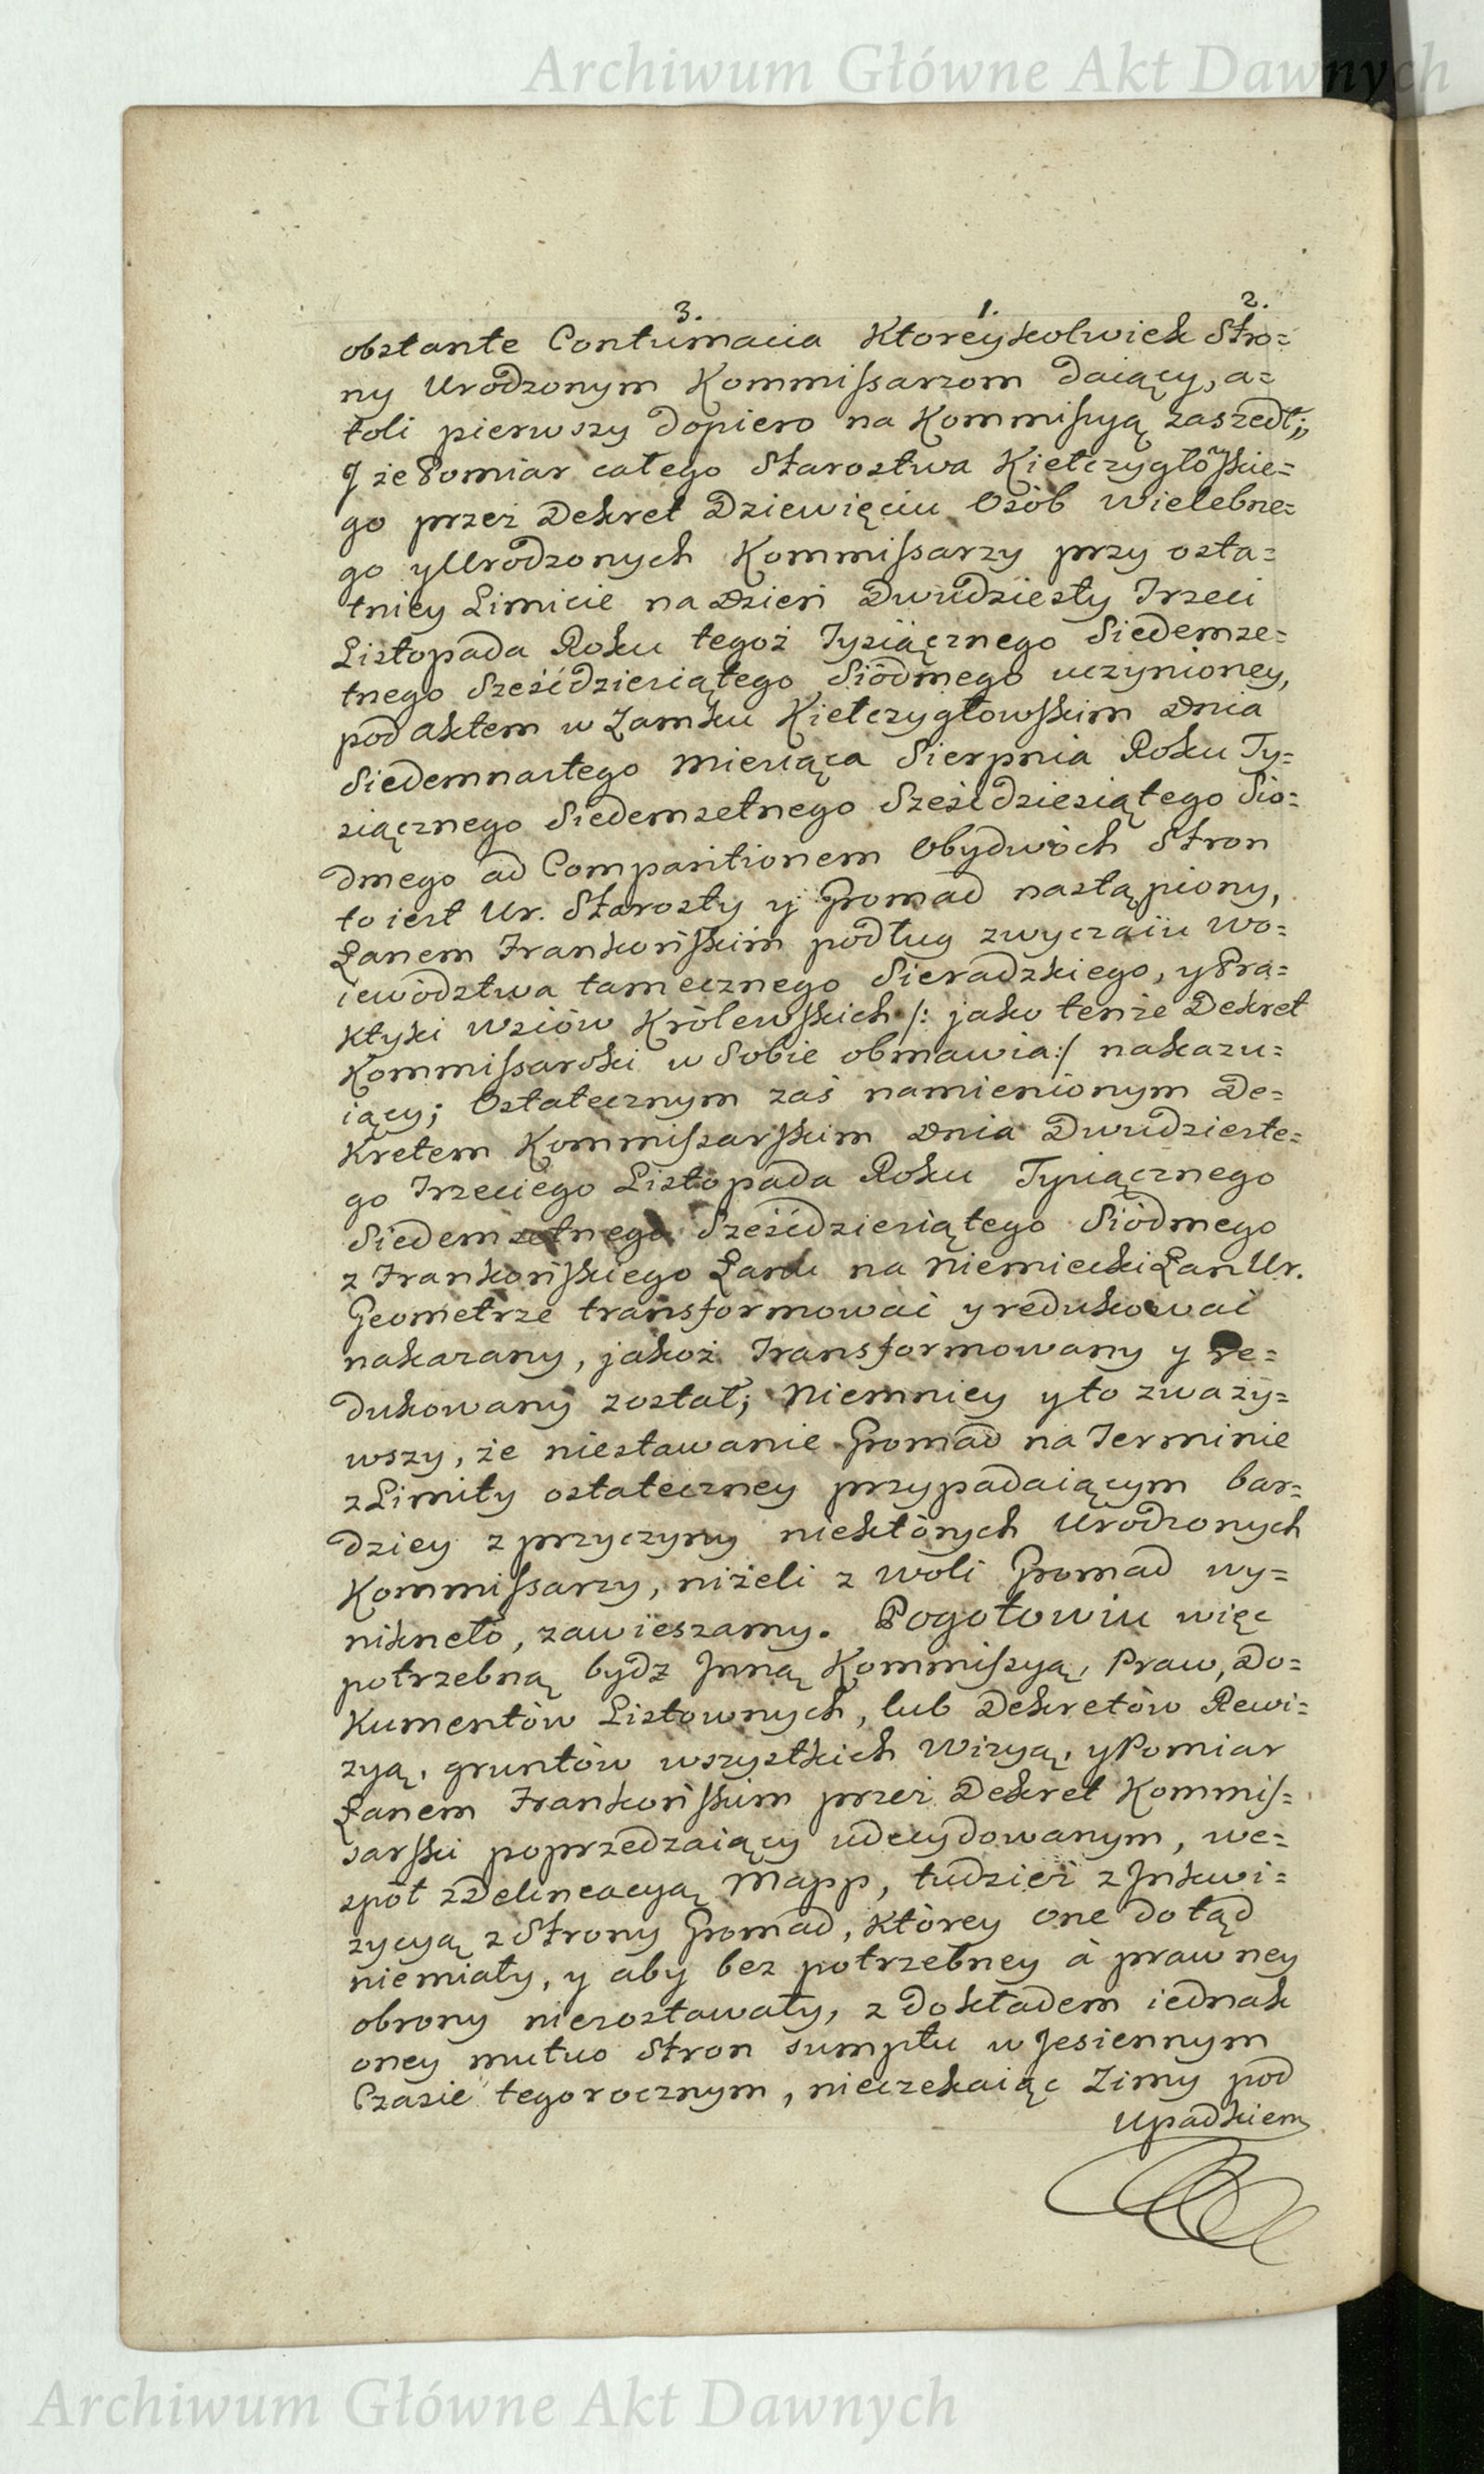 Archiwum Główne Akt Dawnych
3. 1. 2.
obstante Contumacia Ktoreykolwiek Stro=
ny Urodzonym Kommissarzom daiący, a=
toli pierwszy dopiero na Kommissyą zaszedł;
J że Pomiar całego Starostwa Kiełczygłowskie=
go przez Dekret Dziewięciu Osób Wielebne=
go y Urodzonych Kommissarzy przy osta=
tniey Limicie na Dzień Dwudziesty Trzeci
Listopada Roku tegoż Tysiącznego Siedemse=
tnego Sześćdziesiątego Siódmego uczynioney,
pod aktem w Zamku Kiełczygłowskim Dnia
Siedemnastego Miesiąca Sierpnia Roku Ty=
siącznego Siedemsetnego Sześćdziesiątego Sió=
dmego ad Comparitionem Obydwóch Stron
to iest Ur. Starosty y Gromad nastąpiony,
Łanem Frankońskim podług zwyczaiu Wo=
iewództwa tamecznego Sieradzkiego, y Pra=
ktyki Wsiów Królewskich /: jako tenże Dekret
Kommissarski w Sobie obmawia :/ nakazu=
iący; Ostatecznym zaś namienionym De=
kretem Kommissarskim Dnia Dwudzieste=
go Trzeciego Listopada Roku Tysiącznego
Siedemsetnego Sześćdziesiątego Siódmego
z Frankońskiego Łanu na Niemiecki Łan Ur.
Geometrze transformować y redukować
nakazany, jakoż Transformowany y re=
dukowany został; Niemniey y to zważy=
wszy, że niestawanie Gromad na Terminie
z Limity ostateczney przypadaiącym bar=
dziey z przyczyny niektórych Urodzonych
Kommissarzy, niżeli z woli Gromad wy=
nikneło, zawieszamy. Pogotowiu więc
potrzebną bydz Jnną Kommissyą, Praw, Do=
kumentów Listownych, lub Dekretów Rewi=
zyą, gruntów wszystkich Wizyą, y Pomiar
Łanem Frankońskim przez Dekret Kommis=
sarski poprzedzaiący udecydowanym, we=
spół z Delineacyą Mapp, tudzież z Jnkwi=
zycyą z Strony Gromad, którey one dotąd
niemiały, y aby bez potrzebney à prawney
obrony niezostawały, z dokładem iednak
oney mutuo Stron sumptu w Jesiennym
Czasie tegorocznym, nieczekaiąc Zimy pod
Upadkiem
Archiwum Główne Akt Dawnych